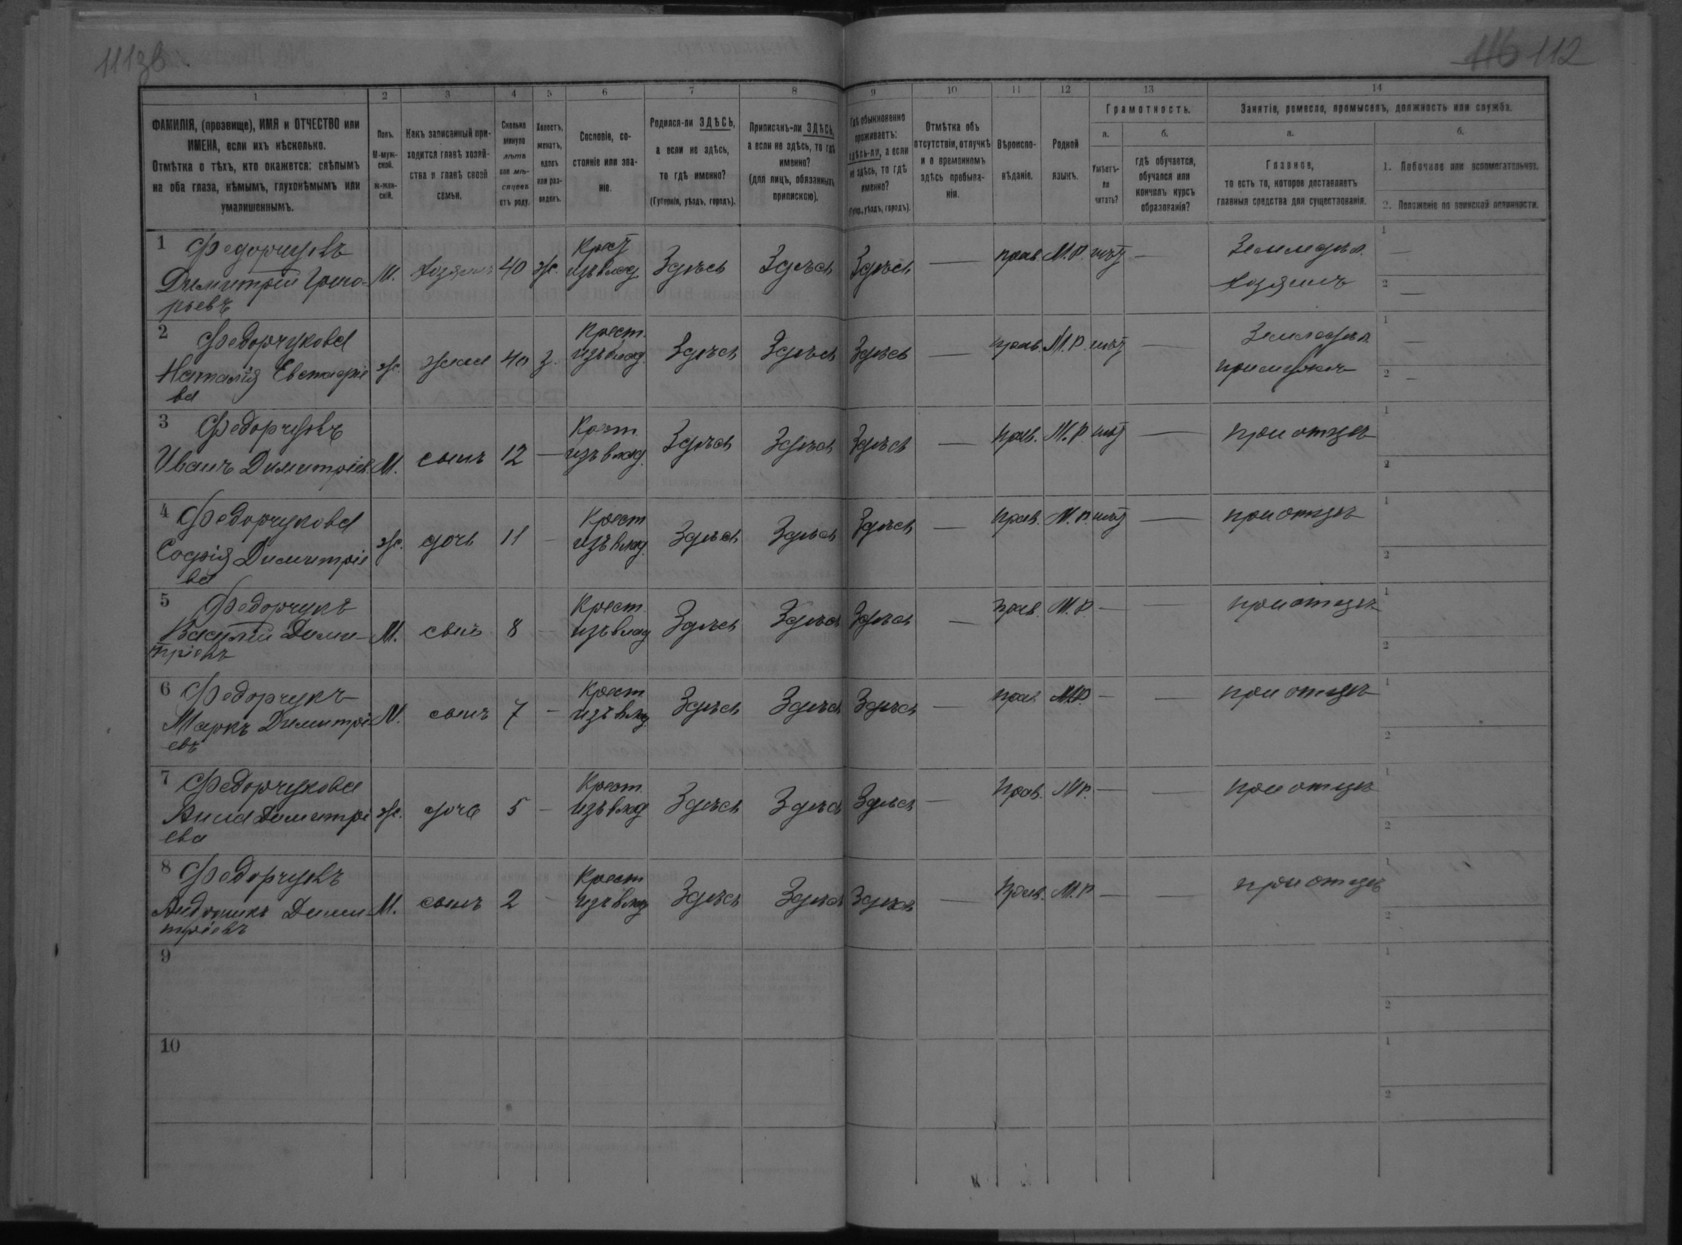 111об
116 112
1 2 3 4 5 6 7 8 9 10 11 12 13 14
ФАМИЛІЯ, (прозвище), ИМЯ и ОТЧЕСТВО или
ИМЕНА, если ихъ нѣсколько.
Отмѣтка о тѣхъ, кто окажется: слѣпымъ
на оба глаза, нѣмымъ, глухонѣмымъ или
умалишеннымъ.
Полъ.
М-муж-
ской.
ж-жен-
скій.
Какъ записанный при-
ходится главѣ хозяй-
ства и главѣ своей
семьи.
Сколько
минуло
лѣтъ
или мѣ-
сяцевъ
отъ роду.
Холостъ,
женатъ,
вдовъ
или раз-
веденъ.
Сословіе, со-
стояніе или зва-
ніе.
Родился-ли ЗДѢСЬ,
а если не здѣсь,
то гдѣ именно?
(Губернія, уѣздъ, городъ).
Приписанъ-ли ЗДѢСЬ,
а если не здѣсь, то гдѣ
именно?
(для лицъ, обязанныхъ
припискою).
Гдѣ обыкновенно
проживаетъ:
здѣсь-ли, а если
не здѣсь, то гдѣ
именно?
(Губ., уѣздъ, городъ).
Отмѣтка объ
отсутствіи, отлучкѣ
и о временномъ
здѣсь пребыва-
ніи.
Вѣроиспо-
вѣданіе.
Родной
языкъ.
Грамотность.
а.
Умѣетъ-
ли
читать?
б.
гдѣ обучается,
обучался или
кончилъ курсъ
образованія?
Занятіе, ремесло, промыселъ, должность или служба.
а.
Главное,
то есть то, которое доставляетъ
главныя средства для существованія.
б.
1. Побочное или вспомогательное.
2. Положеніе по воинской повинности.
1 Федорчукъ
Димитрій Григо-
рьевъ
М. хозяинъ 40 ж. Крест. изъ влад. Здѣсь Здѣсь Здѣсь — прав. М.Р. нѣтъ — Земледѣл. хозяинъ 1 — 2 —
2 Федорчукова
Наталія
ва
ж. жена 40 з. Крест. изъ влад. Здѣсь Здѣсь Здѣсь — прав. М.Р. нѣтъ — Земледѣл. при мужѣ 1 — 2 —
3 Федорчукъ
Иванъ Димитріев.
М. сынъ 12 — Крест. изъ влад. Здѣсь Здѣсь Здѣсь — прав. М.Р. нѣтъ — при отцѣ 1 2
4 Федорчукова
Софія Димитріе
ва
ж. дочь 11 — Крест. изъ влад. Здѣсь Здѣсь Здѣсь — прав. М.Р. нѣтъ — при отцѣ 1 2
5 Федорчукъ
Василій Дими-
тріевъ
М. сынъ 8 Крест. изъ влад. Здѣсь Здѣсь Здѣсь — прав. М.Р. — — при отцѣ 1 2
6 Федорчукъ
Маркъ Димитрі
евъ
М. сынъ 7 — Крест. изъ влад. Здѣсь Здѣсь Здѣсь — прав. М.Р. — — при отцѣ 1 2
7 Федорчукова
Анна Димитрі
ева
ж. дочь 5 — Крест. изъ влад. Здѣсь Здѣсь Здѣсь — прав. М.Р. — — при отцѣ 1 2
8 Федорчукъ
Дими-
тріевъ
М. сынъ 2 — Крест. изъ влад. Здѣсь Здѣсь Здѣсь — прав. М.Р. — — при отцѣ 1 2
9 1 2
10 1 2